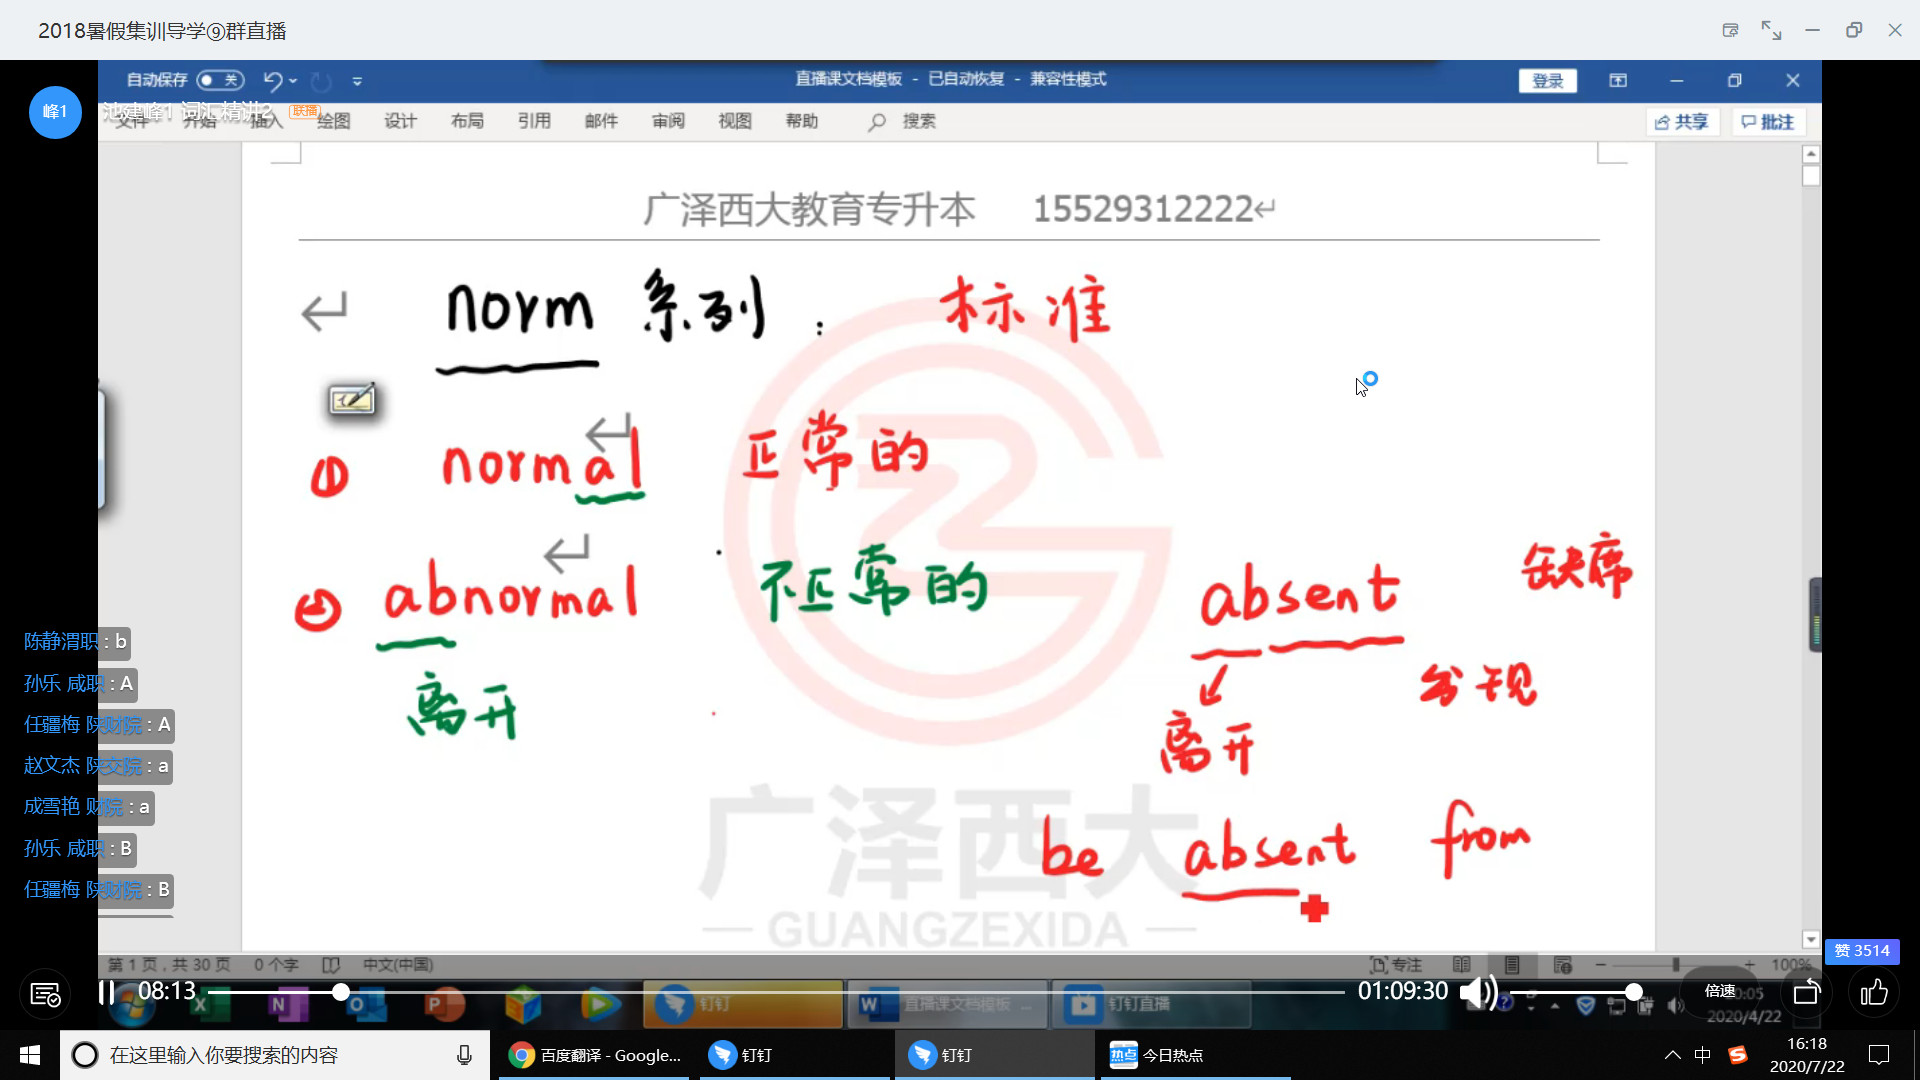 2018暑假集训导学⑨群直播
自动保存 关
直播课文档模板 - 已自动恢复 - 兼容性模式
登录
峰1
池建峰1 词汇精讲2 联播
文件 开始 插入 绘图 设计 布局 引用 邮件 审阅 视图 帮助 搜索
共享 批注
广泽西大教育专升本 15529312222
norm 系列 : 标准
① normal 正常的
② abnormal 不正常的
离开
absent 缺席
离开 发现
be absent from
广泽西大
GUANGZEXIDA
陈静渭职 : b
孙乐 咸职 : A
任疆梅 陕财院 : A
赵文杰 陕交院 : a
成雪艳 财院 : a
孙乐 咸职 : B
任疆梅 陕财院 : B
赞 3514
第 1 页，共 30 页 0 个字 中文(中国)
专注 100%
08:13
01:09:30
倍速
钉钉
直播课文档模板 ...
钉钉直播
2020/4/22
在这里输入你要搜索的内容
百度翻译 - Google...
钉钉
钉钉
热点 今日热点
中
16:18
2020/7/22